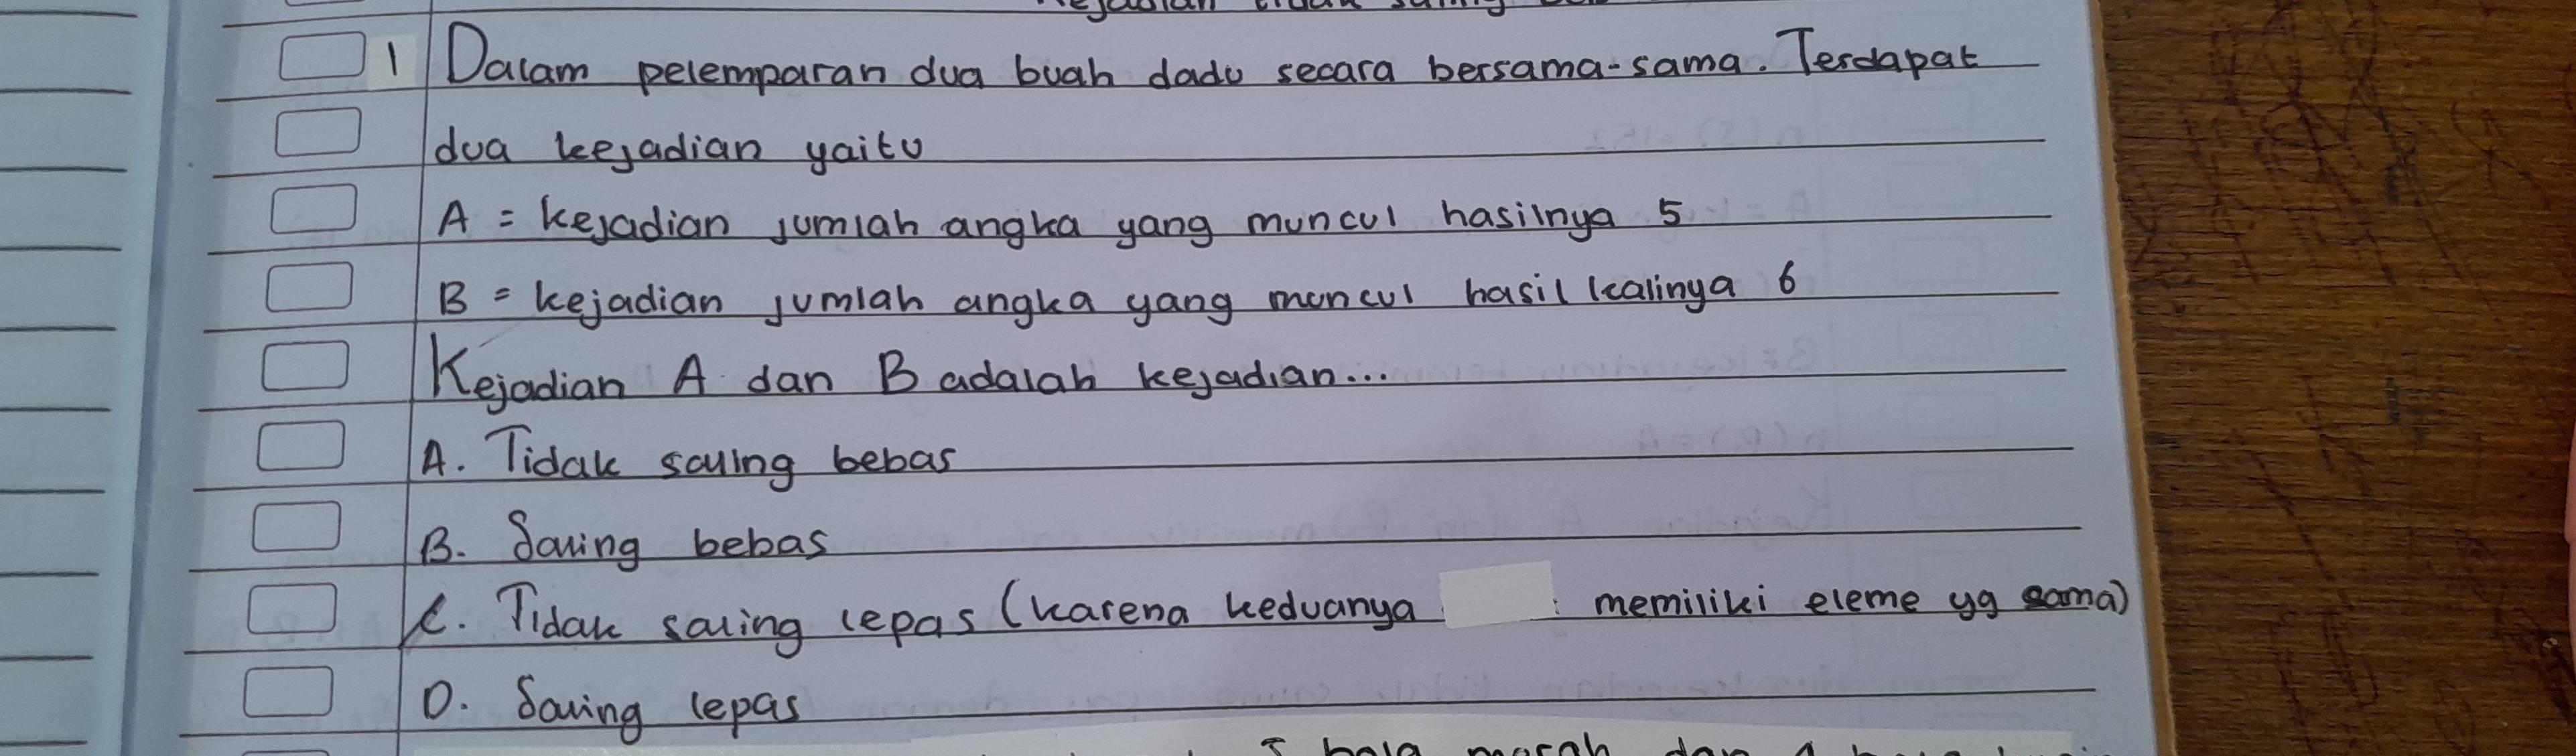 1 Dalam pelemparan dua buah dadu secara bersama-sama. Terdapat
dua kejadian yaitu
A = kejadian jumlah angka yang muncul hasilnya 5
B = kejadian jumlah angka yang muncul hasil kalinya 6
Kejadian A dan B adalah kejadian...
A. Tidak saling bebas
B. Saling bebas
C. Tidak saling lepas (karena keduanya memiliki eleme yg sama)
D. Saling lepas